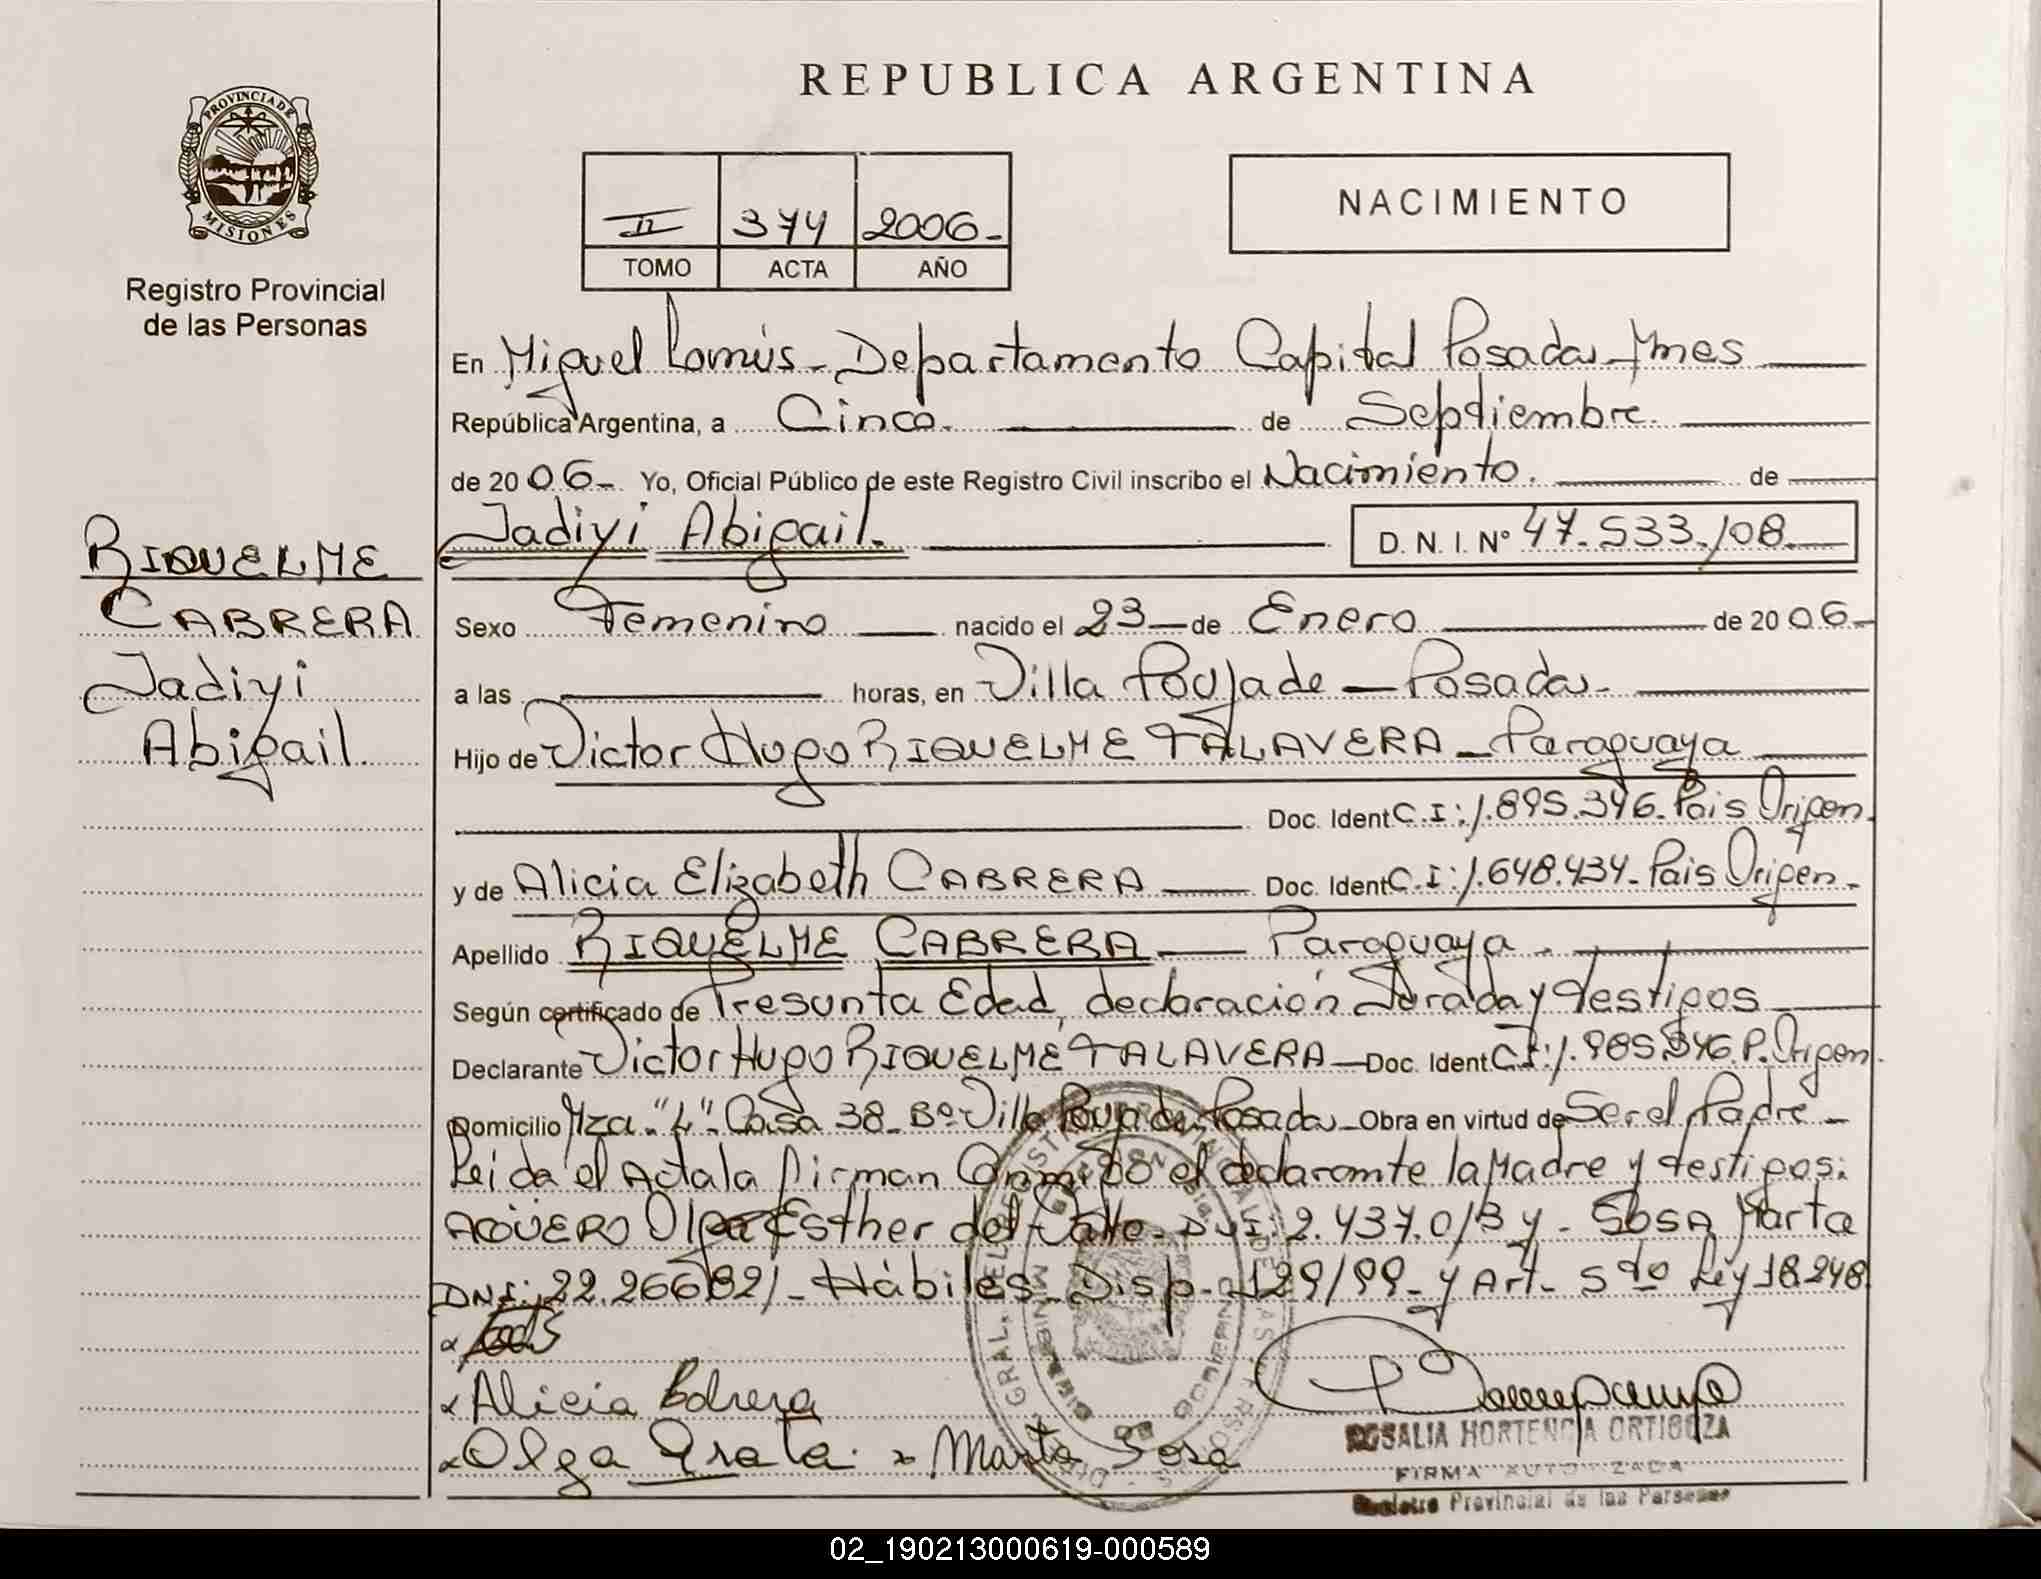 REPUBLICA ARGENTINA
PROVINCIA DE
MISIONES
Registro Provincial
de las Personas
II 374 2006-
TOMO ACTA AÑO
NACIMIENTO
En Miguel Lanús - Departamento Capital Posadas Mnes
República Argentina, a Cinco. de Septiembre.
de 2006- Yo, Oficial Público de este Registro Civil inscribo el Nacimiento. de
Jadiyi Abigail. D. N. I. N° 47.533.108
RIQUELME
CABRERA
Jadiyi
Abigail.
Sexo Femenino nacido el 23 de Enero de 2006-
a las horas, en Villa Poujade - Posadas-
Hijo de Victor Hugo RIQUELME TALAVERA - Paraguaya
Doc. Ident C.I: 1.895.346. Pais Origen
y de Alicia Elizabeth CABRERA Doc. Ident C.I: 1.648.434- Pais Origen-
Apellido RIQUELME CABRERA - Paraguaya.
Según certificado de Presunta Edad, declaración Jurada y testigos
Declarante Victor Hugo RIQUELME TALAVERA - Doc. Ident C.I: 1.985.346. P. Origen
Domicilio Mza "L" Casa 38- B° Villa Poujade. Posadas - Obra en virtud de Ser el Padre-
Leida el Acta la firman Conmigo el declarante la Madre y testigos:
AGÜERO Olga Esther del Valle- DNI: 2.437.013 y - SOSA Marta
DNI: 22.266821- Hábiles- Disp- 129/99- y Art- 5to Ley 18.248
Alicia Cabrera
Olga Marta Sosa
ROSALIA HORTENCIA ORTIGOZA
FIRMA AUTORIZADA
Registro Provincial de las Personas
02_190213000619-000589